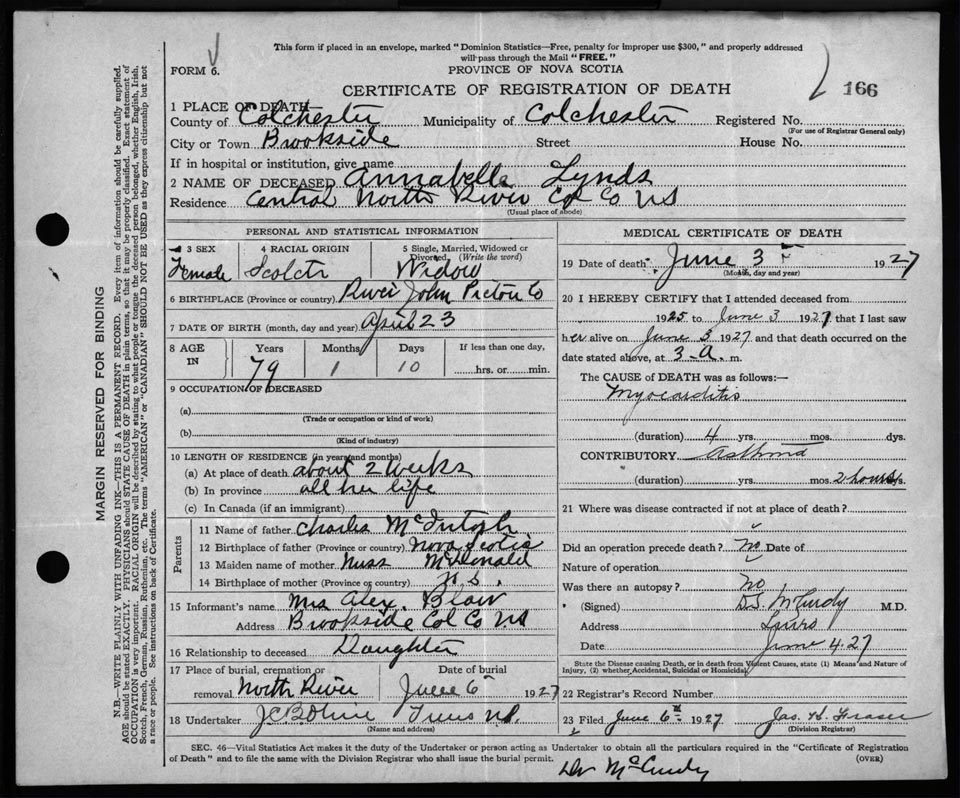 This form if placed in an envelope, marked "Dominion Statistics—Free, penalty for improper use $300," and properly addressed
will pass through the Mail "FREE."
FORM 6.
PROVINCE OF NOVA SCOTIA
CERTIFICATE OF REGISTRATION OF DEATH
166
1 PLACE OF DEATH—
County of Colchester Municipality of Colchester Registered No.
(For use of Registrar General only)
City or Town Brookside Street House No.
If in hospital or institution, give name
2 NAME OF DECEASED Annabelle Lynds
Residence Central North River Col Co NS
(Usual place of abode)
PERSONAL AND STATISTICAL INFORMATION
3 SEX 4 RACIAL ORIGIN 5 Single, Married, Widowed or
Divorced, (Write the word)
Female Scotch Widow
6 BIRTHPLACE (Province or country) River John Pictou Co
7 DATE OF BIRTH (month, day and year) April 23
8 AGE IN Years Months Days If less than one day,
79 1 10 hrs. or min.
9 OCCUPATION OF DECEASED
(a)
(Trade or occupation or kind of work)
(b)
(Kind of industry)
10 LENGTH OF RESIDENCE (in years and months)
(a) At place of death about 2 weeks
(b) In province all her life
(c) In Canada (if an immigrant)
Parents
11 Name of father Charles McIntosh
12 Birthplace of father (Province or country) Nova Scotia
13 Maiden name of mother McDonald
14 Birthplace of mother (Province or country) N.S.
15 Informant's name Mrs Alex. Blair
Address Brookside Col Co NS
16 Relationship to deceased Daughter
17 Place of burial, cremation or Date of burial
removal North River June 6 1927
18 Undertaker Truro NS.
(Name and address)
MEDICAL CERTIFICATE OF DEATH
19 Date of death June 3 1927
(Month, day and year)
20 I HEREBY CERTIFY that I attended deceased from
1925 to June 3 1927 that I last saw
her alive on June 3 1927 and that death occurred on the
date stated above, at 3-A. m.
The CAUSE of DEATH was as follows:—
Myocarditis
(duration) 4 yrs. mos. dys.
CONTRIBUTORY Asthma
(duration) yrs. mos. 2 hours dys.
21 Where was disease contracted if not at place of death?
Did an operation precede death? No Date of
Nature of operation
Was there an autopsy? No
(Signed) D.S. McCurdy M.D.
Address Truro
Date June 4.27
State the Disease causing Death, or in death from Violent Causes, state (1) Means and Nature of
Injury, (2) whether Accidental, Suicidal or Homicidal.
22 Registrar's Record Number
23 Filed June 6th 1927 Jas. H. Fraser
(Division Registrar)
SEC. 46—Vital Statistics Act makes it the duty of the Undertaker or person acting as Undertaker to obtain all the particulars required in the "Certificate of Registration
of Death" and to file the same with the Division Registrar who shall issue the burial permit. (OVER)
Dr McCurdy
MARGIN RESERVED FOR BINDING
N.B.—WRITE PLAINLY WITH UNFADING INK—THIS IS A PERMANENT RECORD. Every item of information should be carefully supplied.
AGE should be stated EXACTLY. PHYSICIANS should STATE CAUSE OF DEATH in plain terms, so that it may be properly classified. Exact statement of
OCCUPATION is very important. RACIAL ORIGIN will be described by stating to what people or tongue the deceased person belonged, whether English, Irish,
Scotch, French, German, Russian, Ruthenian, etc. The terms "AMERICAN" or "CANADIAN" SHOULD NOT BE USED as they express citizenship but not
a race or people. See instructions on back of Certificate.